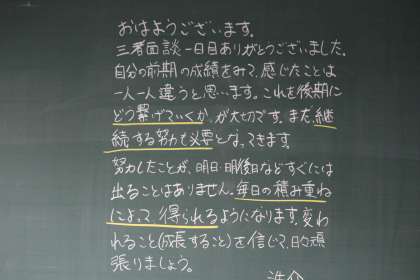 おはようございます。
三者面談一日目ありがとうございました。
自分の前期の成績をみて、感じたことは
一人一人違うと思います。これを後期に
どう繋げていくか、が大切です。また、継
続する努力も必要となってきます。
努力したことが、明日・明後日などすぐには
出ることはありません。毎日の積み重ね
によって得られるようになります。変わ
れること(成長すること)を信じて、日々頑
張りましょう。